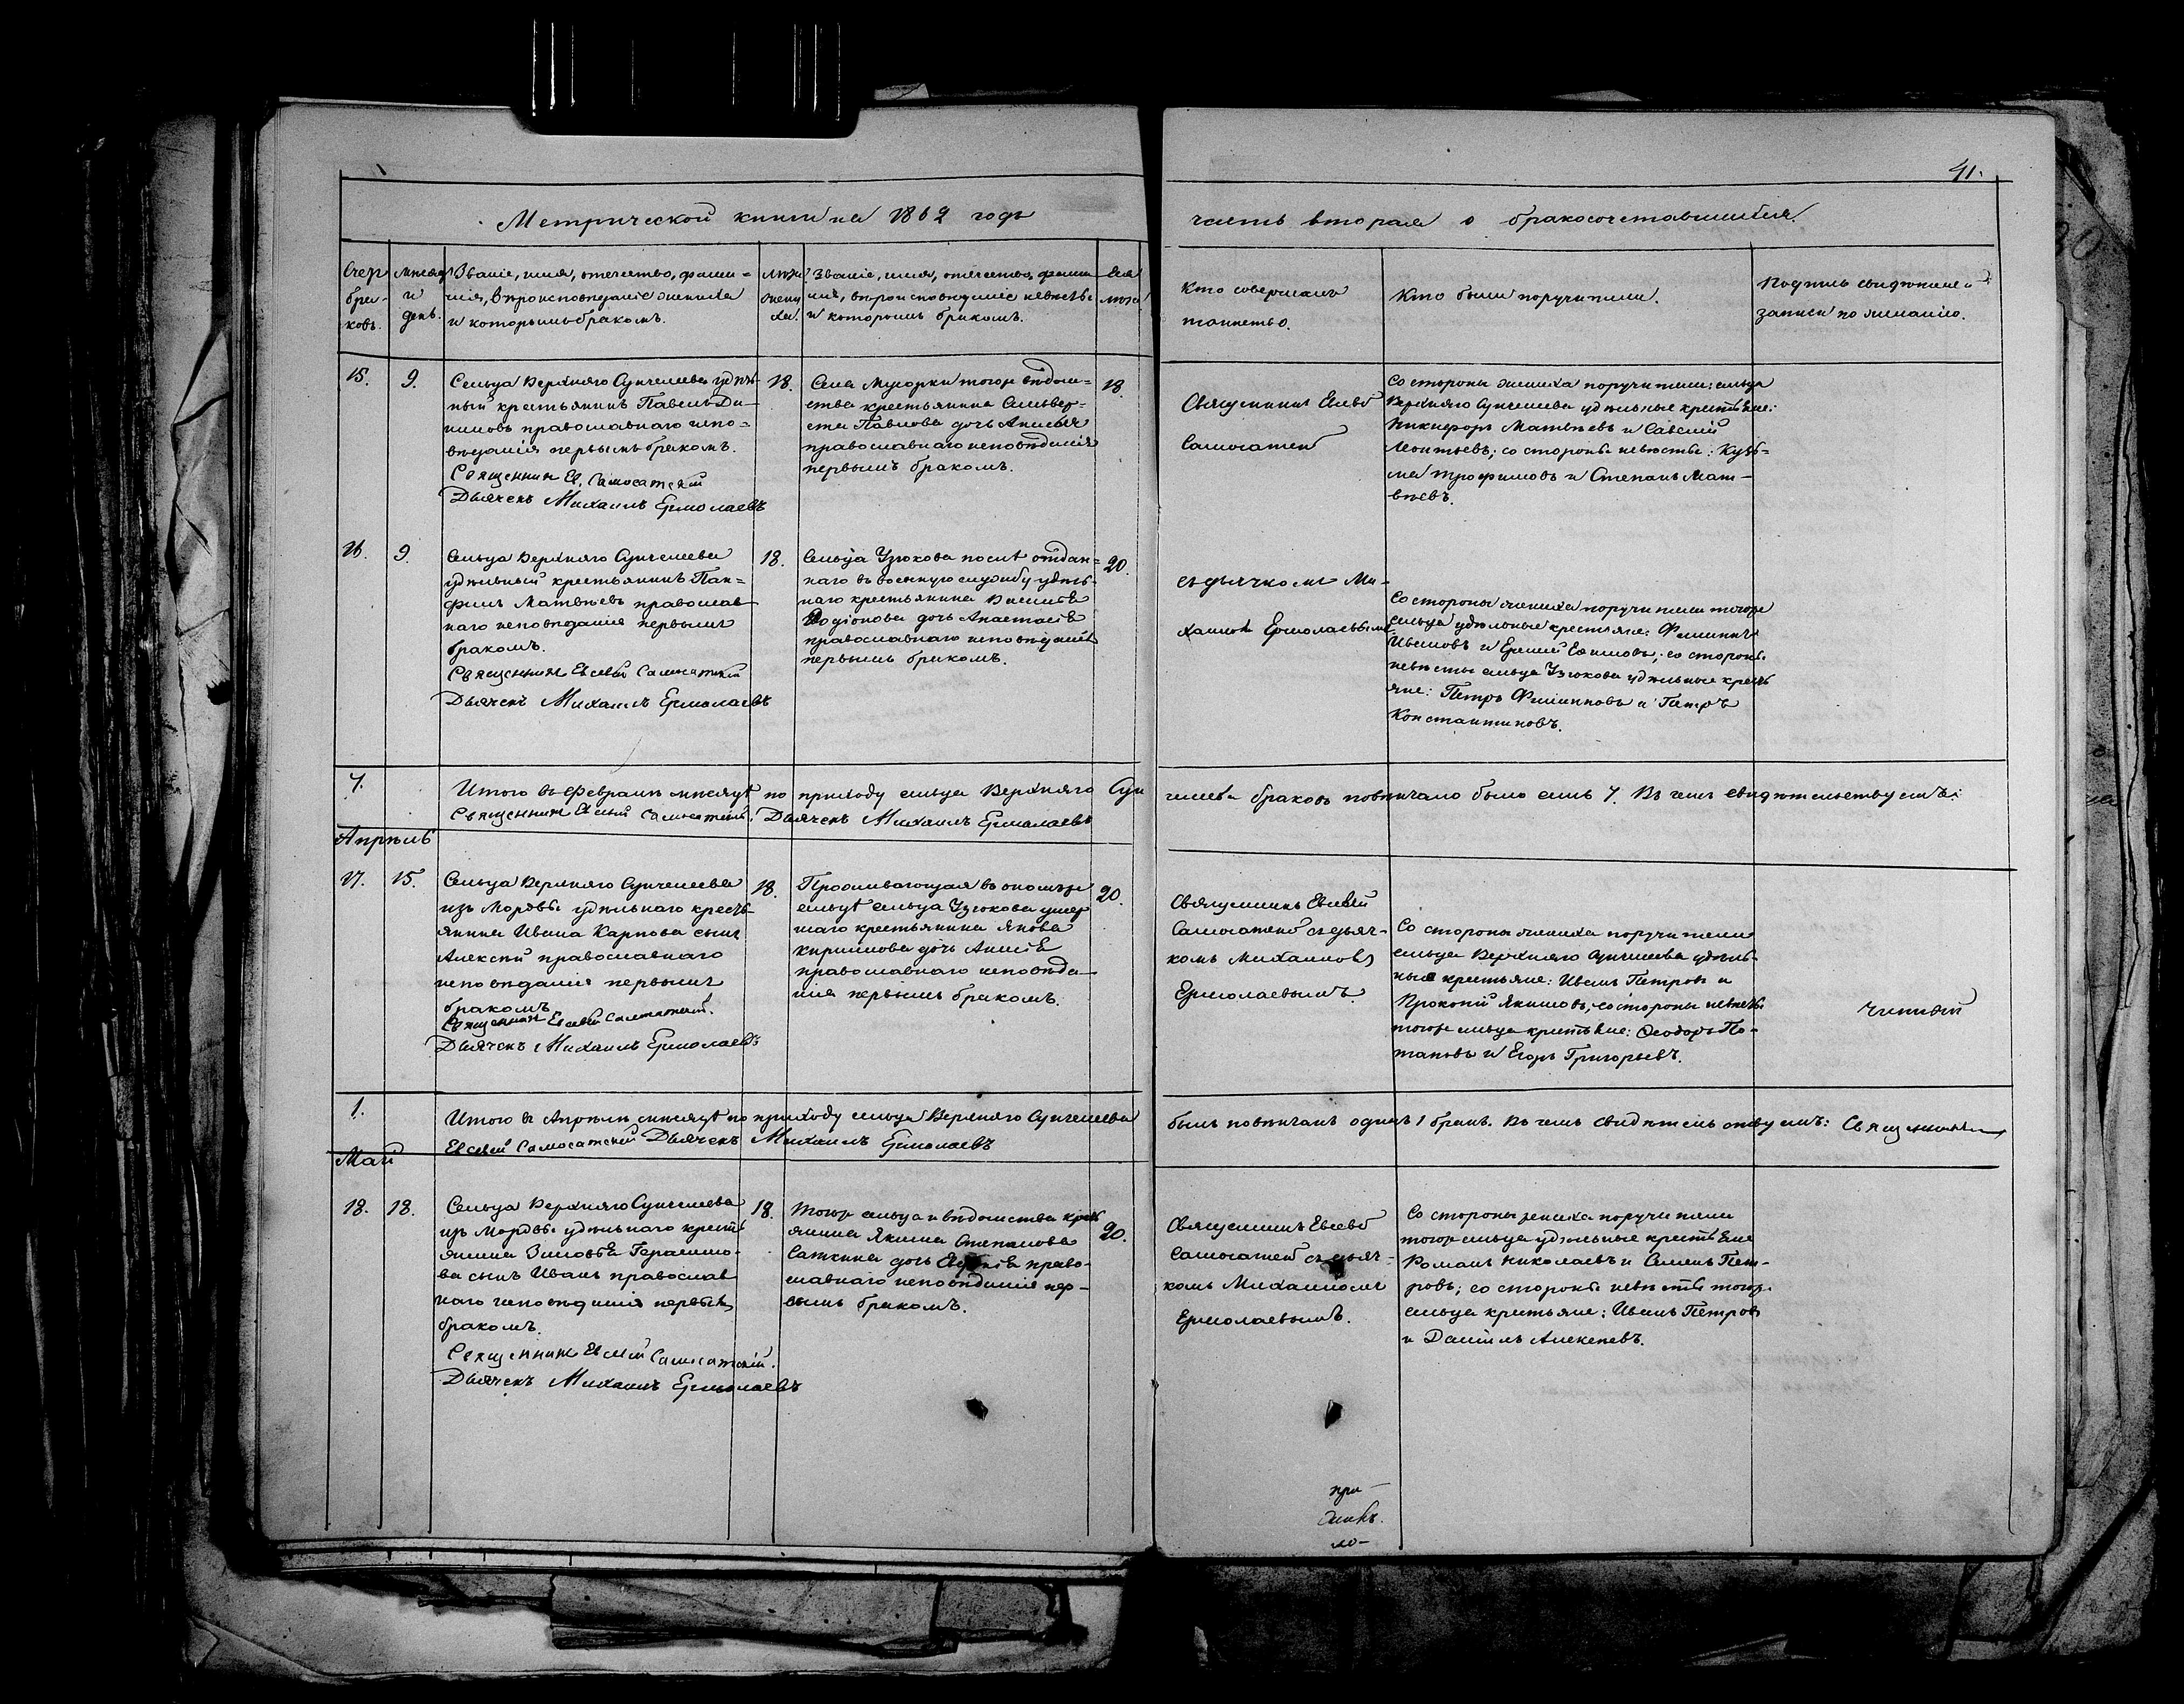 41.
Метрической книги на 1862 годъ
часть вторая о бракосочетавшихся.
Счетъ браковъ.
Мѣсяцъ и день.
Званіе, имя, отчество, фами-
лія, вѣроисповѣданіе жениха
и которымъ бракомъ.
лѣта
жени
ха.
Званіе, имя, отчество, фами
лія, вѣроисповѣданіе невѣсты
и которымъ бракомъ.
Ея
лѣта
Кто совершалъ
таинство.
Кто были поручители.
Подпись свидѣтелей
записи по желанію.
15.
9.
Сельца Верхняго Сунчелеева удѣль-
ный крестьянинъ Павелъ Ди-
митровъ православнаго испо-
вѣданія первымъ бракомъ.
Священник Ев. Самосатскій
Дьячекъ Михаилъ Ермолаевъ
18.
Села Мусорки тогоже вѣдом-
ства крестьянина Сильвер-
ста Павлова дочь Анисья
православнаго исповѣданія
первымъ бракомъ.
18.
Священникъ Евсевій
Самосатскій
Со стороны жениха поручители: сельца
Верхняго Сунчелеева удѣльные крестьяне:
Никифоръ Матвѣевъ и Савелій
Леонтьевъ; со стороны невѣсты: Кузь-
ма Трофимовъ и Степанъ Мат-
вѣевъ.
16.
9.
Сельца Верхняго Сунчелеева
удѣльный крестьянинъ Пан-
филъ Матвѣевъ православ
наго исповѣданія первымъ
бракомъ.
Священник Евсевій Самосатскій
Дьячекъ Михаилъ Ермолаевъ
18.
Сельца Узюкова послѣ отдан-
наго въ военную службу удѣль-
наго крестьянина Василія
Родіонова дочь Анастасія
православнаго исповѣданія
первымъ бракомъ.
20.
съ дьячкомъ Ми-
хаиломъ Ермолаевымъ
Со стороны жениха поручители тогоже
сельца удѣльные крестьяне: Филиппъ
Ивановъ и Еремій Евимовъ; со стороны
невѣсты сельца Узюкова удѣльные кресть
яне: Петръ Филипповъ и Петръ
Константиновъ.
7.
Итого въ Февралѣ мѣсяцѣ по приходу сельца Верхняго Сун
челеева браковъ повѣнчано было семь 7. Въ чемъ свидѣтельствуемъ:
Священник Евсевій Самосатскій. Дьячекъ Михаилъ Ермолаевъ
Апрѣль
17.
15.
Сельца Верхняго Сунчелеева
изъ Мордвы удѣльнаго кресть-
янина Ивана Карпова сынъ
Алексѣй православнаго
исповѣданія первымъ
бракомъ
Священник Евсевій Самосатскій.
Дьячекъ Михаилъ Ермолаевъ
18.
Проживающая въ ономъже
сельцѣ сельца Узюкова умер
шаго крестьянина Якова
Кириллова дочь
православнаго исповѣда-
нія первымъ бракомъ.
20.
Священникъ Евсевій
Самосатскій съ дьяч-
комъ Михаиломъ
Ермолаевымъ
Со стороны жениха поручители
сельца Верхняго Сунчелеева удѣль-
ные крестьяне: Иванъ Петровъ и
Прокопій Якимовъ; со стороны невѣсты
тогоже сельца крестьяне: Ѳеодоръ По-
таповъ и Егоръ Григорьевъ.
Читалъ
1.
Итого въ Апрѣлѣ мѣсяцѣ по приходу сельца Верхняго Сунчелеева
былъ повѣнчанъ одинъ 1 бракъ. Въ чемъ свидѣтельствуемъ: Священникъ
Евсевій Самосатскій Дьячекъ Михаилъ Ермолаевъ
Май
18.
18.
Сельца Верхняго Сунчелеева
изъ Мордвы удѣльнаго кресть
янина Зиновія Герасимо-
ва сынъ Иванъ православ
наго исповѣданія первымъ
бракомъ.
Священник Евсевій Самосатскій.
Дьячекъ Михаилъ Ермолаевъ
18.
Тогоже сельца и вѣдомства кресть
янина Якима Степанова
Саткина дочь право-
славнаго исповѣданія пер-
вымъ бракомъ.
20.
Священникъ Евсевій
Самосатскій съ дьяч-
комъ Михаиломъ
Ермолаевымъ.
Со стороны жениха поручители
тогоже сельца удѣльные крестьяне
Романъ Николаевъ и Семенъ Пет-
ровъ; со стороны невѣсты тогоже
сельца крестьяне: Иванъ Петровъ
и Даніилъ Алексѣевъ.
при-
ло-